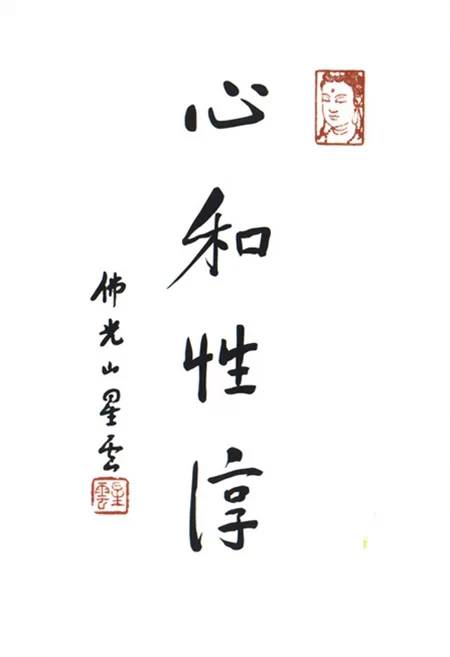 心和性淳
佛光山星雲
星雲